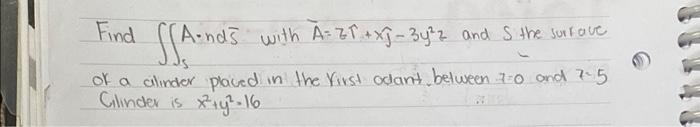 Find ∬ₛ A·nds̄ with Ā=zî+xĵ-3y²z and S the surface
of a cilinder placed in the first octant, between z=0 and z=5
Cilinder is x²+y²=16